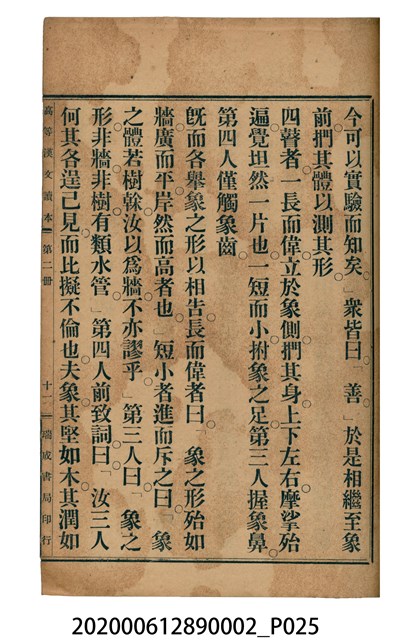 今可以實驗而知矣。」衆皆曰「善」於是相繼至象
前捫其體以測其形
四瞽者一長而偉立於象側捫其身上下左右摩挲殆
遍覺坦然一片也一短而小拊象之足第三人握象鼻
第四人僅觸象齒
旣而各舉象之形以相告長而偉者曰「象之形殆如
牆廣而平岸然而高者也」短小者進而斥之曰「象
之體若樹幹汝以爲牆不亦謬乎」第三人曰「象之
形非牆非樹有類水管」第四人前致詞曰「汝三人
何其各逞己見而比擬不倫也夫象其堅如木其潤如
高等漢文讀本 第二冊 十一 瑞成書局印行
202000612890002_P025